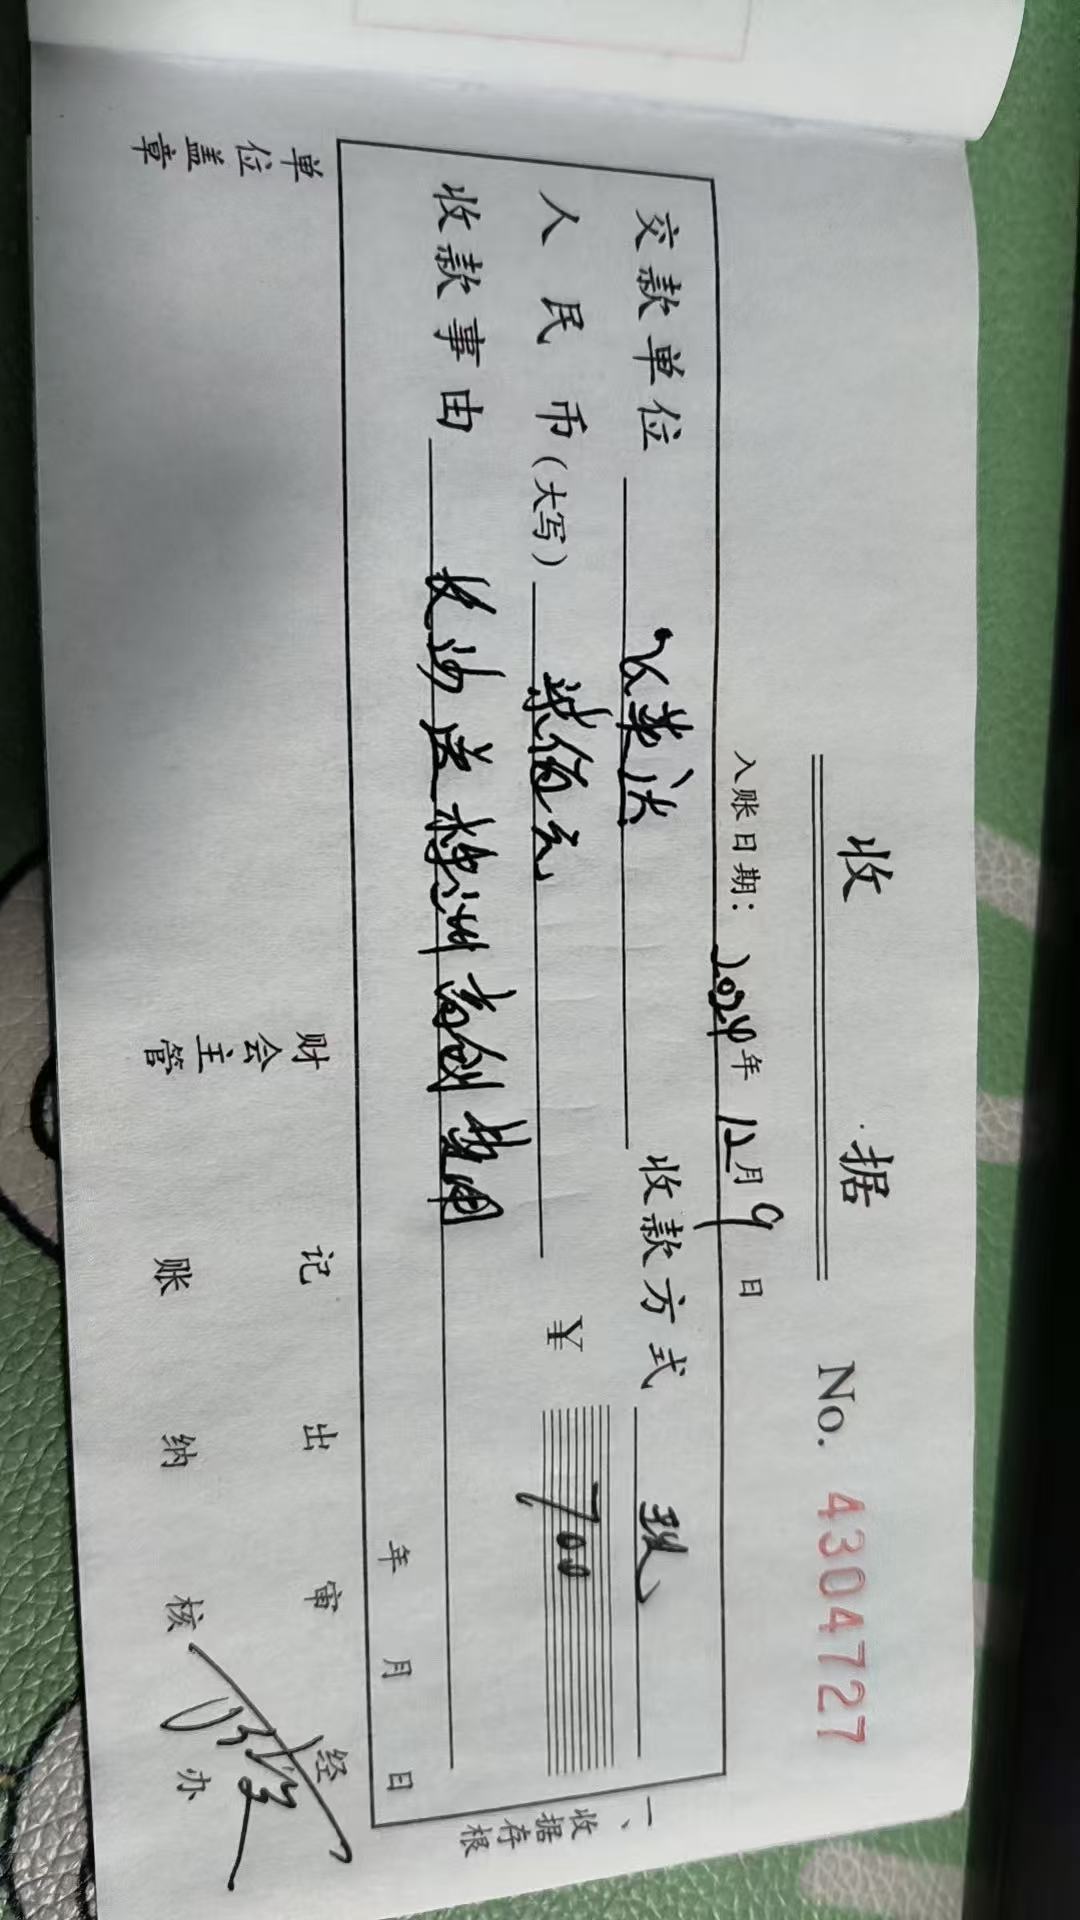 收 据 No. 4304727
入账日期: 2024年 12月 9日
交款单位 收款方式 现
人民币(大写) 柒佰元 ¥ 700
收款事由 长沙送株洲 费用
年 月 日
一、收据存根
单位盖章 财会主管 记账 出纳 审核 经办